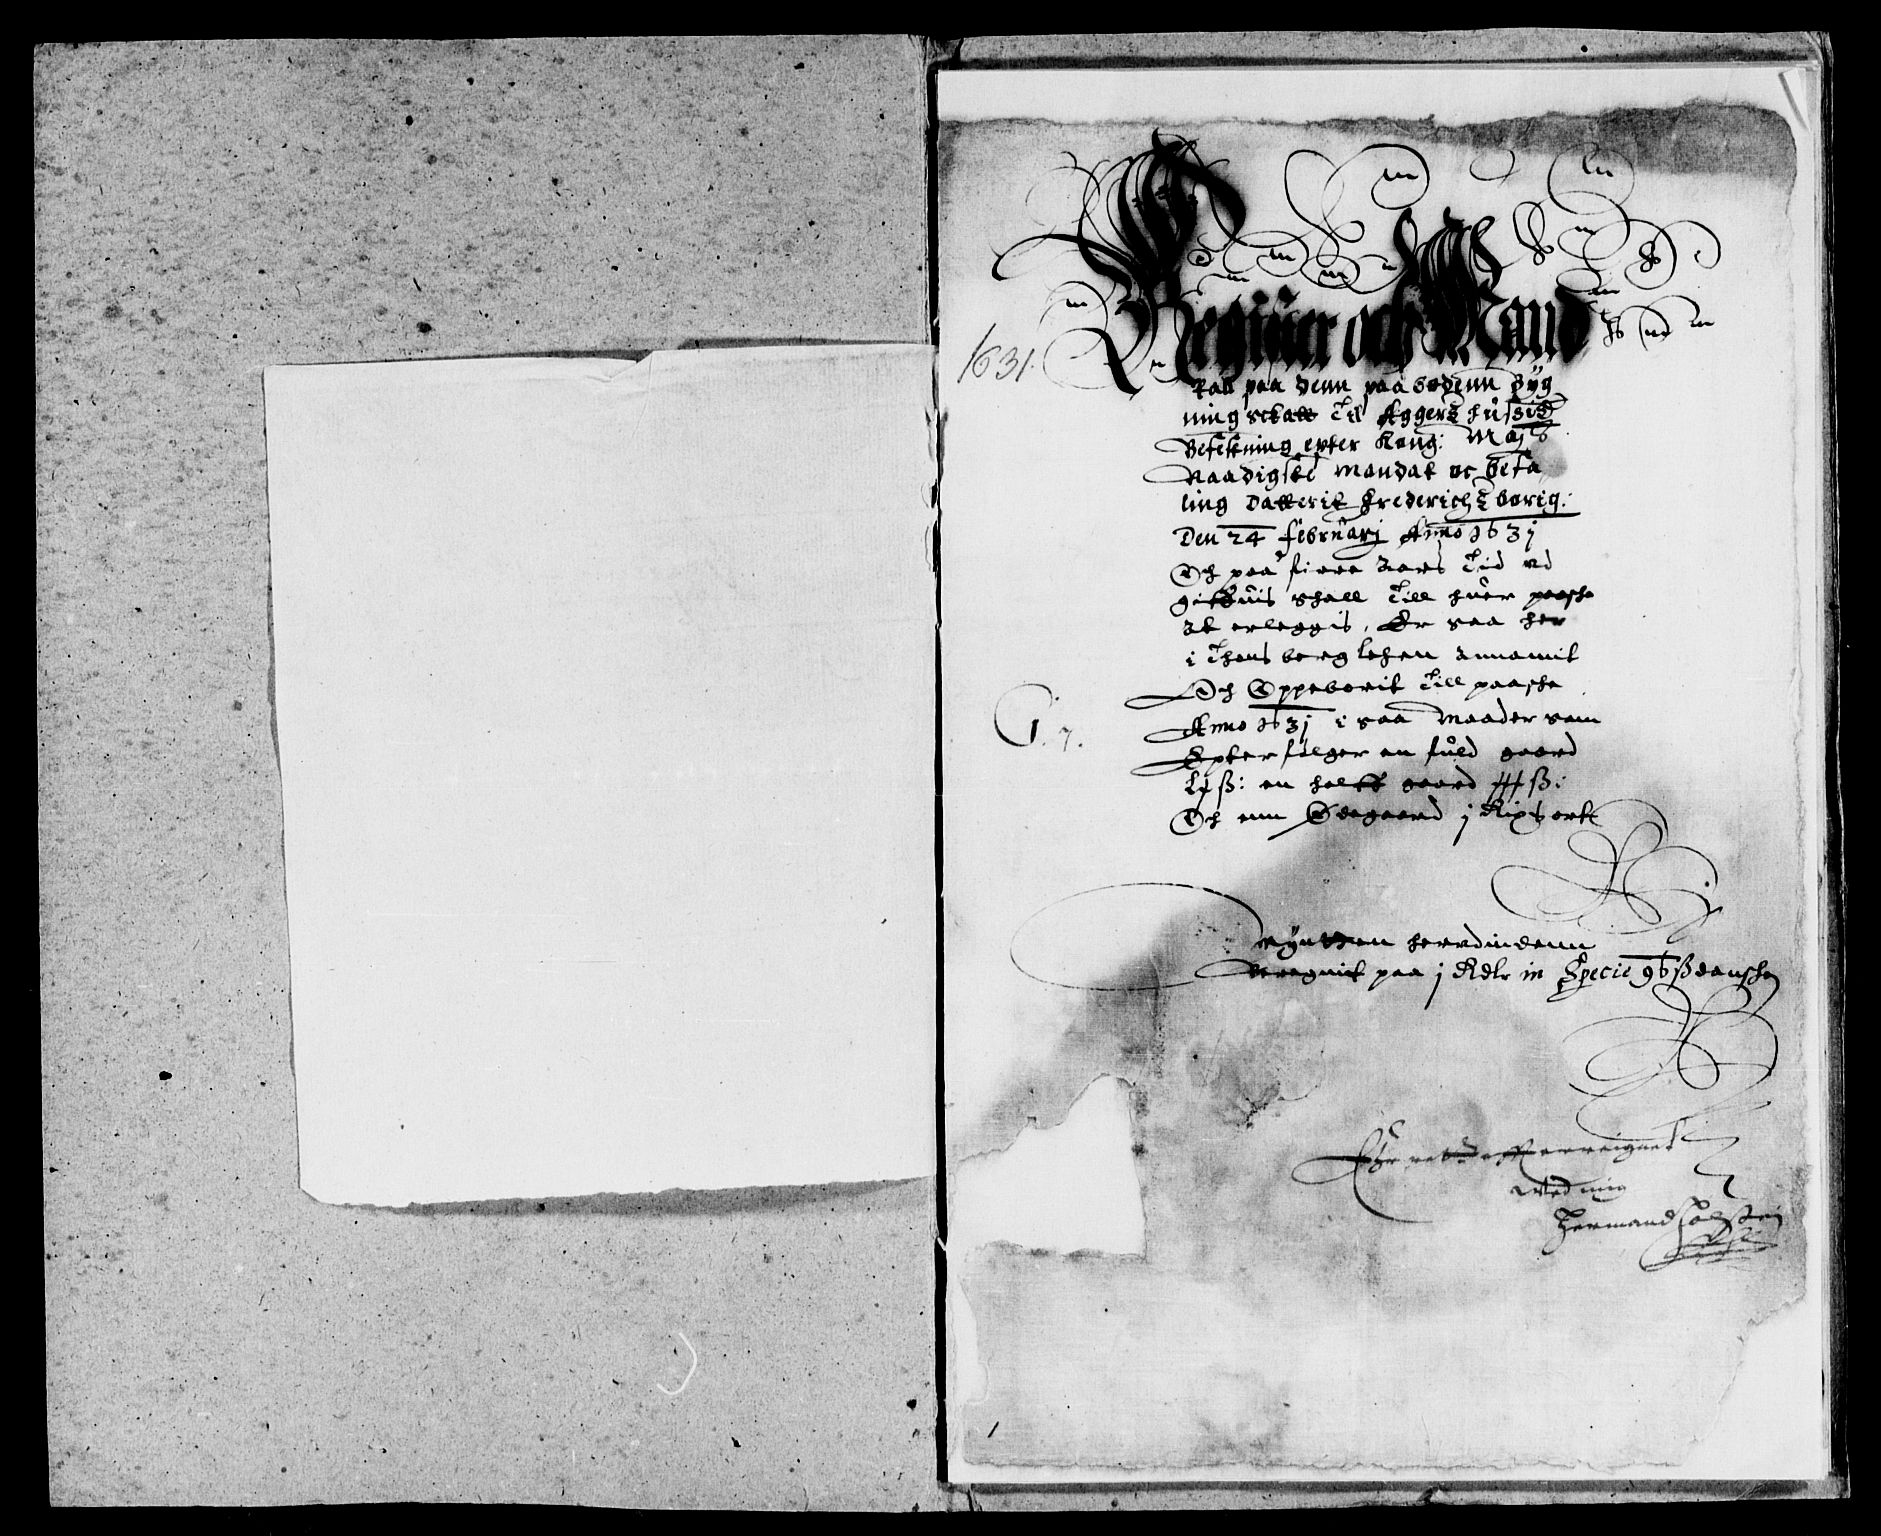 1631.
Register och Mand
tall paa denn paa bødenn Byg
ning schatt Til Aggers huusis
Befestning epter Kong: Maÿts
Naadigste mandat oc befa
ling Datterit Frederichs borig:
Den 24 februarj Anno 1631
Och paa fiere Aars Tid vd
giffuis schall Till huer paasche
At erleggis, Er saa her
i Thons berg lehen Annamit
Och Oppeborit Till paasche
Anno 1631 i saa maader som
Epterfølger en fuld gaard
ß: en halff gaard ß:
Och enn Ødegaard j Rixs ortt
G. 7.
Mÿntten herudindenn
Beregnit paa j Rdlr in Specie 96 ß dansche
ved mig
Hermand